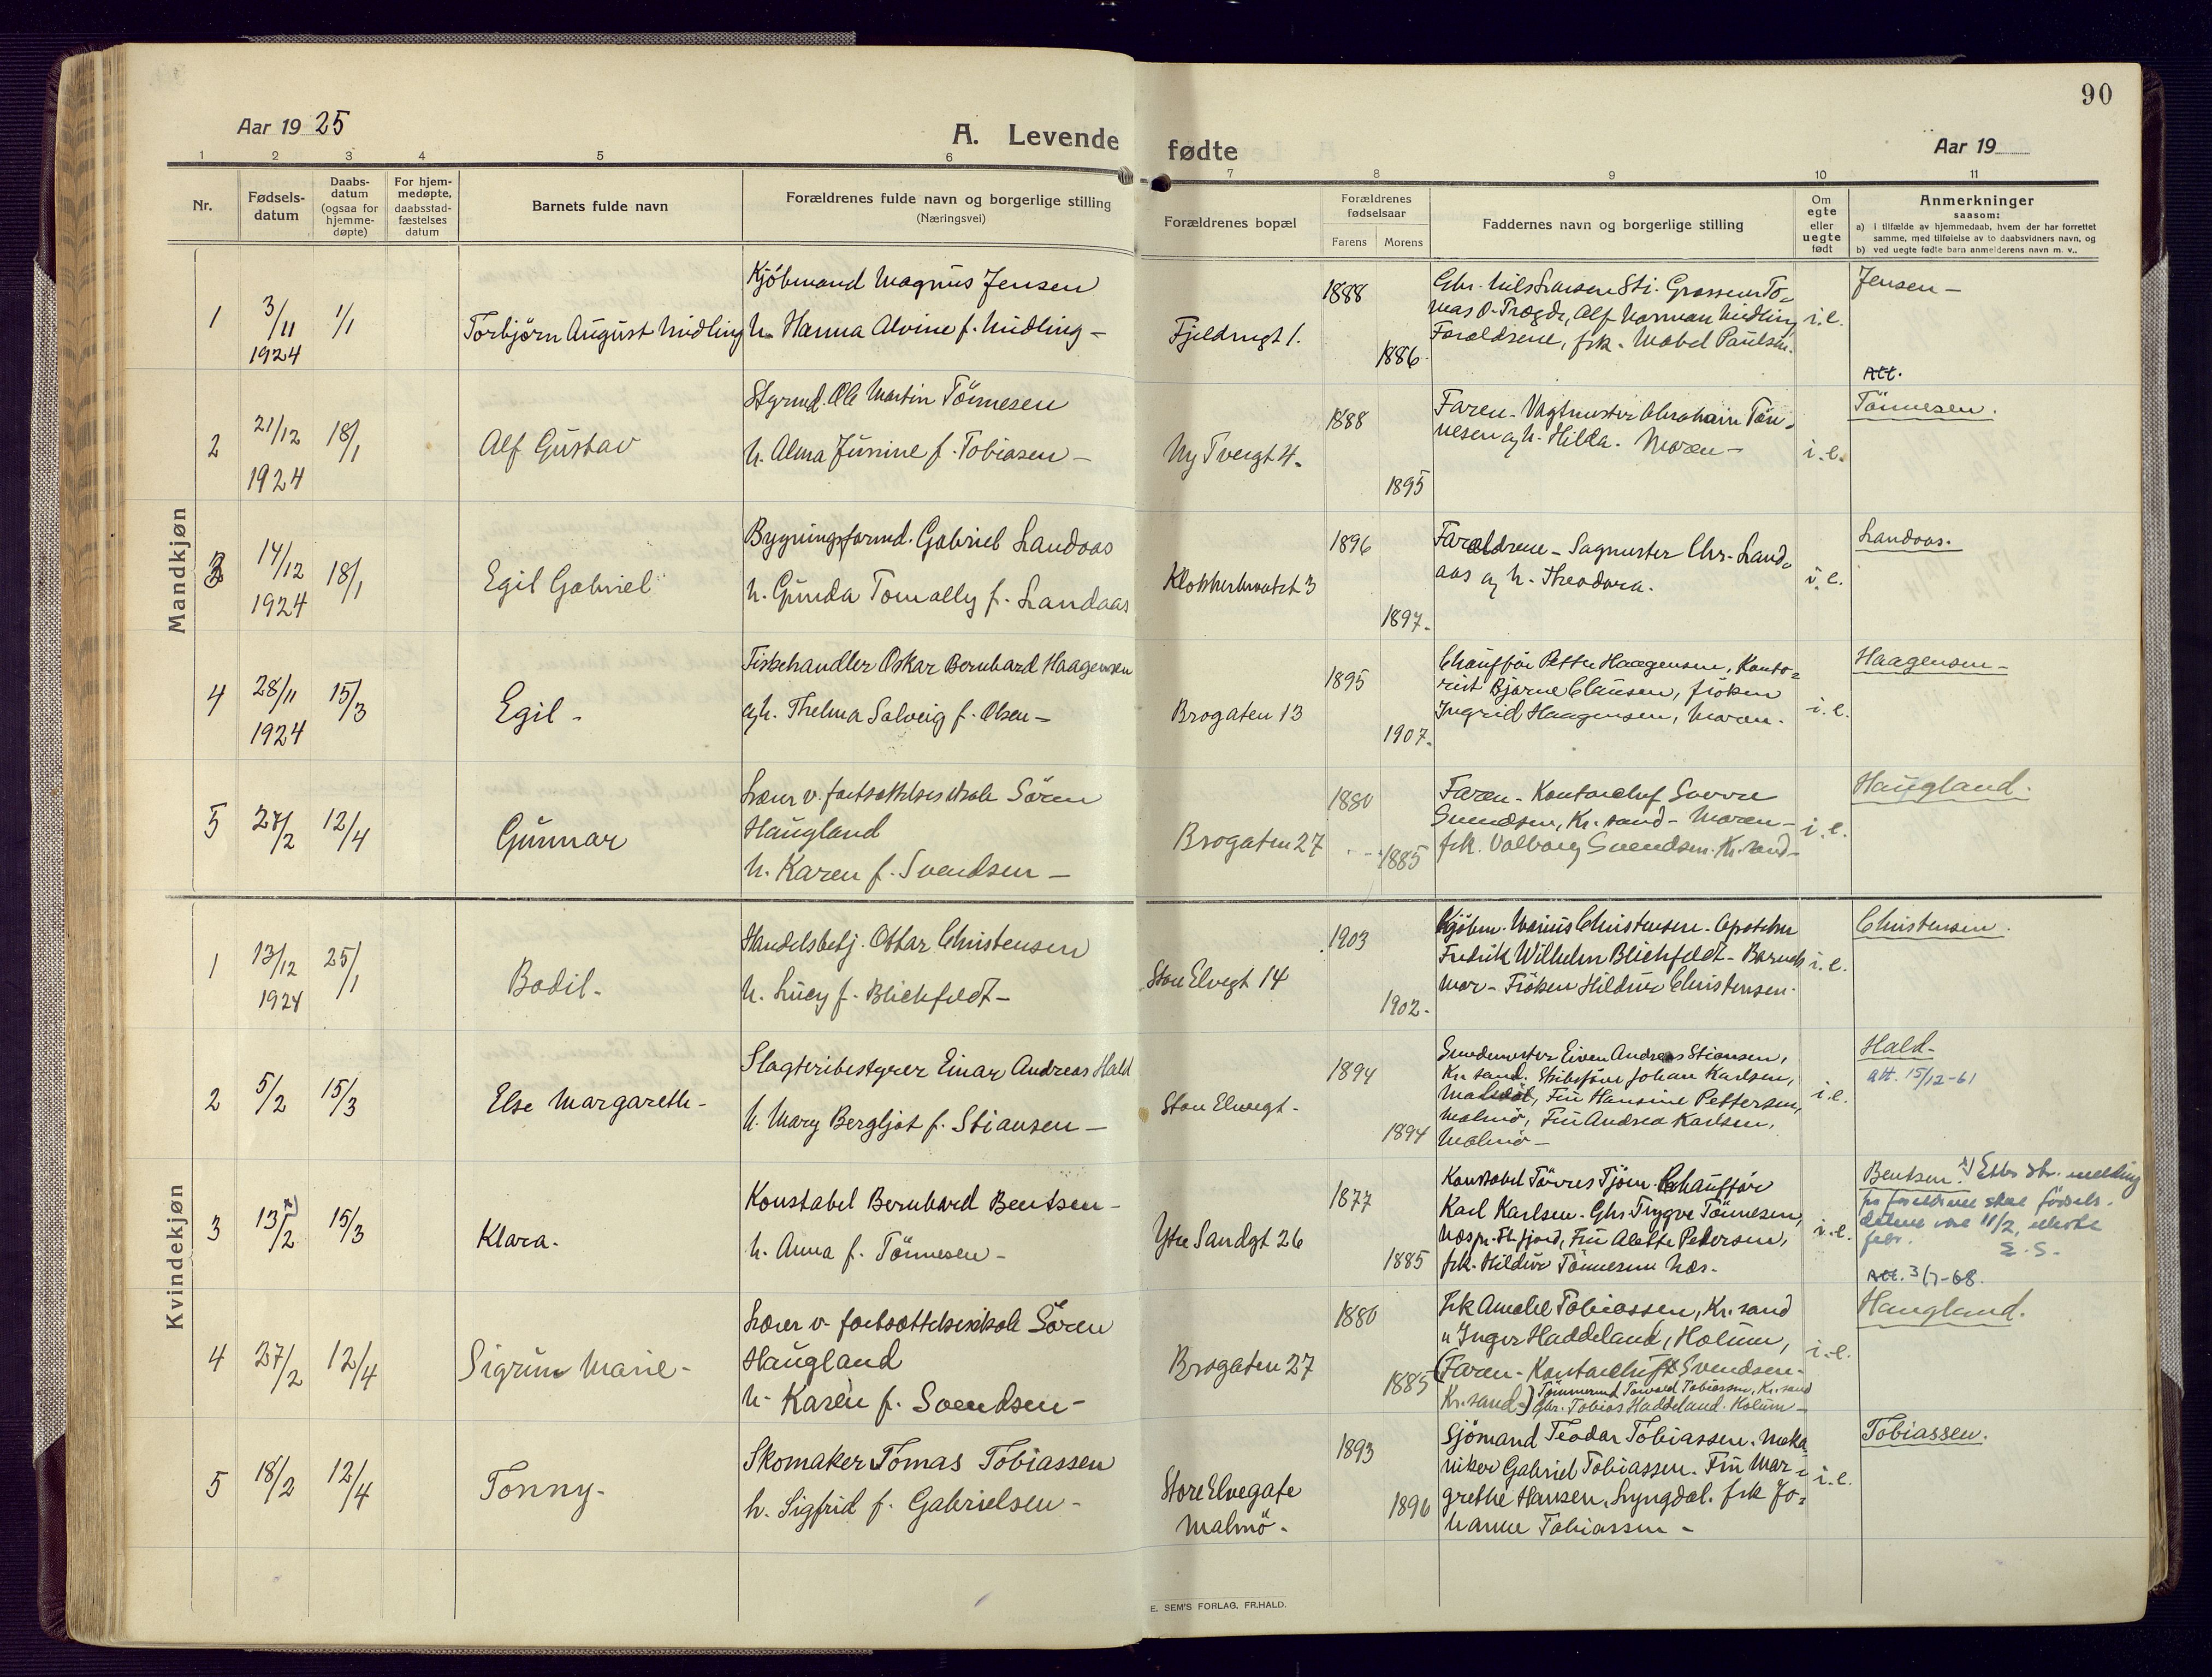 90
Aar 1925
A. Levende
fødte
Aar 19
1 2 3 4 5 6 7 8 9 10 11
Nr.
Fødsels-
datum
Daabs-
datum
(ogsaa for
hjemme-
døpte)
For hjem-
medøpte,
daabsstad-
fæstelses
datum
Barnets fulde navn
Forældrenes fulde navn og borgerlige stilling
(Næringsvei)
Forældrenes bopæl
Forældrenes
fødselsaar
Farens Morens
Faddernes navn og borgerlige stilling
Om
egte
eller
uegte
født
Anmerkninger
saasom:
a) i tilfælde av hjemmedaab, hvem der har forrettet
samme, med tilføielse av to daabsvidners navn, og
b) ved uegte fødte barn anmelderens navn m. v..
Mandkjøn
1
3/11
1924
1/1
Torbjörn August Midling
Kjöbmand Magnus Jensen
h. Hanna Alvine f. Midling -
Fjeldvgt 1.
1888
1886.
Ghr. Nils Larsen Sti. Grosserer To=
mas O. Trægde, Alf Norman Midling
Forældrene, frk. Mabel Paulsen.
i.e.
Jensen -
Att.
2
21/12
1924
18/1
Alf Gustav
Styrmd. Ole Martin Tönnesen
h. Alma Jusine f. Tobiasen -
Ny Tvergt 4.
1888
1895
Faren - Vagtmester Abraham Tön=
nesen og h. Hilda. Moren -
i.e.
Tönnesen.
3
14/12
1924
18/1
Egil Gabriel
Bygningsformd. Gabriel Landaas
h. Gunda Tomally f. Landaas
3
1896
1897.
Forældrene - Sagmester Chr. Land=
aas og h. Theodora.
i.e.
Landaas.
4
28/11
1924
15/3
Egil -
Fiskehandler Oskar Bernhard Haagensen
og h. Thelma Solveig f. Olsen -
Brogaten 13
1895
1907.
Chauffør Petter Haagensen, Konto=
rist Bjarne Clausen, fröken
Ingrid Haagensen, Moren.
i.e.
Haagensen -
5
27/2
12/4
Gunnar
Lærer v. fortsættelsesskole Sören
Haugland
h. Karen f. Svendsen -
Brogaten 27
1880
1885
Faren - Kontorchef Sverre
Svendsen, Kr.sand - Moren -
frk. Valborg Svendsen. Kr.sand -
i.e.
Haugland.
Kvindekjøn
1
13/12
1924
25/1
Bodil -
Handelsbetj. Ottar Christensen
h. Lucy f. Blichfeldt -
Store Elvegt 14
1903
1902.
Kjöbm. Marius Christensen. Apotheker
Fredrik Wilhelm Blichfeldt - Barnets
mor - Fröken Hildur Christensen.
i.e.
Christensen.
2
5/2
15/3
Else Margarethe -
Slagteribestyrer Einar Andreas Hald
h. Mary Bergljot f. Stiansen -
Store Elvegt -
1894
1894
Smedmester Eiven Andreas Stiansen,
Kr.sand. Skibsförer Johan Karlsen,
Fru Hansine Pettersen,
Malmö, Fru Andrea Karlsen,
Malmö -
i.e.
Hald -
att. 15/12-61
3
13/2 x)
15/3
Klara -
Konstabel Bernhard Bentsen -
h. Anna f. Tönnesen -
Ytre Sandgt 26
1877
1885
Konstabel Törres Tjöm. Chauffør
Karl Karlsen - Ghr. Trygve Tönnesen,
Næs pr. Fl.fjord, Fru Alette Pedersen,
frk. Hildur Tönnesen Næs.
i.e.
Bentsen. x) Etter skr. melding
fra foreldrene skal fødsels-
datum være 11/2, ikke 13
febr. S.S.
Att. 3/7-68.
4
27/2
12/4
Sigrun Marie -
Lærer v. fortsættelsesskole Sören
Haugland
h. Karen f. Svendsen -
Brogaten 27
1880
1885
Frk Amalie Tobiassen, Kr.sand
" Inger Haddeland, Holum,
(Faren - Kontorchef Svendsen -
Kr.sand.) Tömmermd Torvald Tobiassen, Kr.sand
Ghr. Tobias Haddeland. Holum -
i.e.
Haugland.
5
18/2
12/4
Tonny -
Skomaker Tomas Tobiassen
h. Sigfrid f. Gabrielsen -
Store Elvegate
Malmö -
1893
1896
Sjömand Teodor Tobiassen. Meka
niker Gabriel Tobiassen. Fru Mar=
grethe Hansen, Lyngdal. frk Jo=
hanne Tobiassen -
i.e.
Tobiassen.
E. SEM'S FORLAG, FR.HALD.